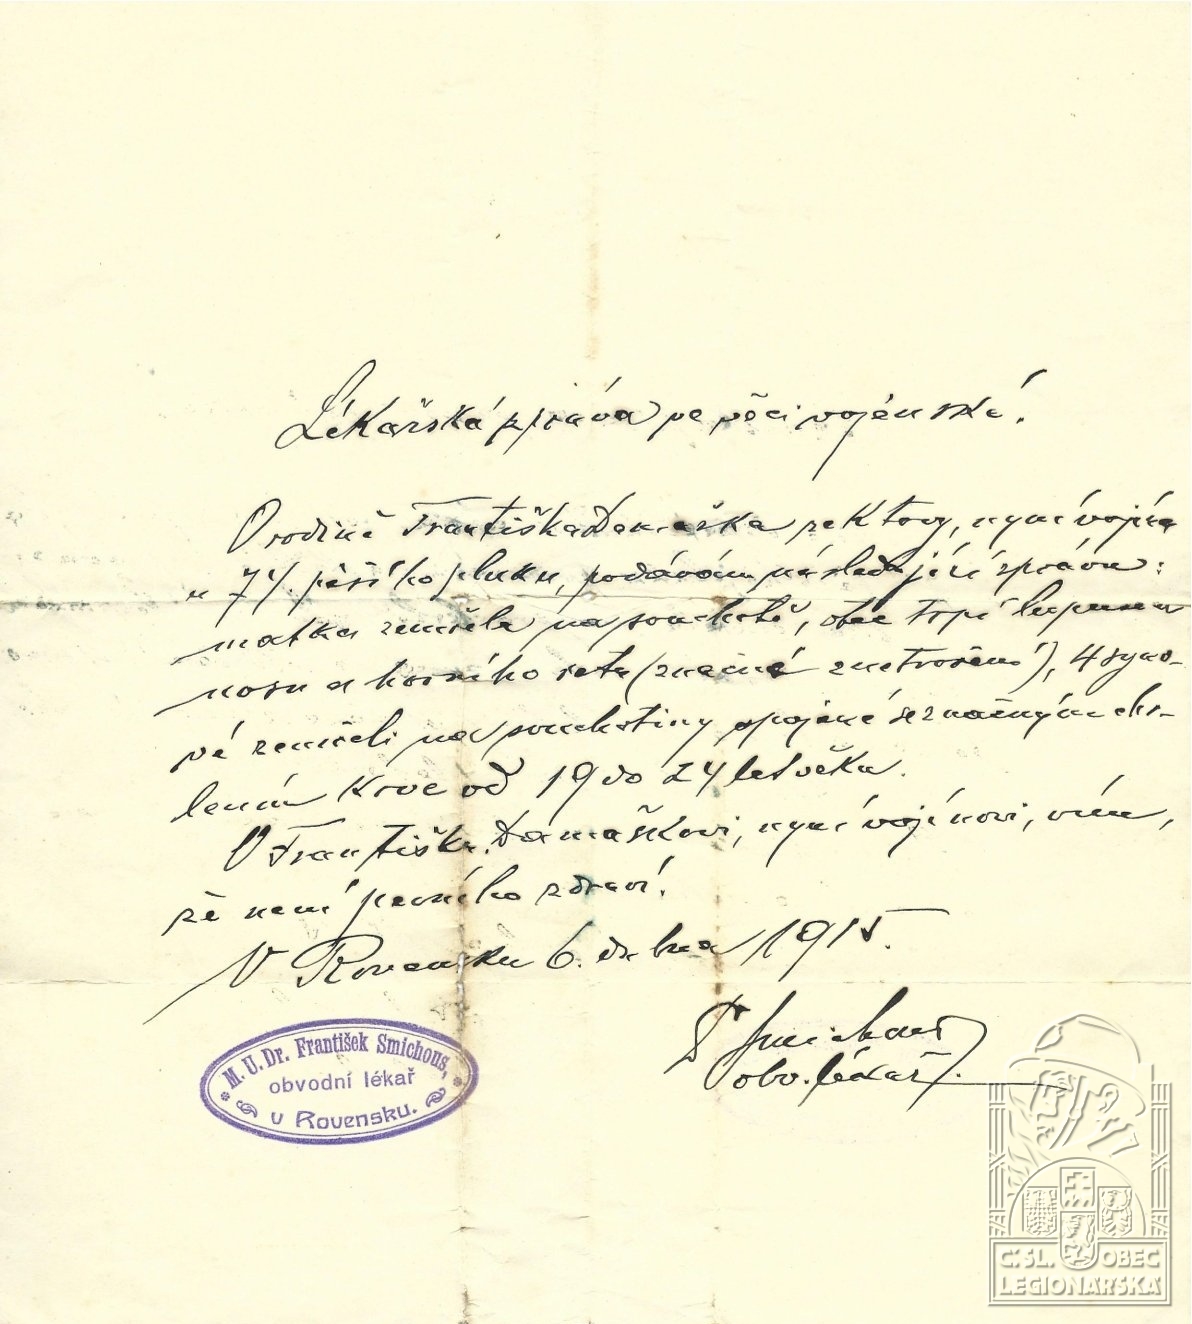 Lékařská zpráva ve věci vojenské.
O rodině Františka Damaška ze Ktovy, nyní vojína
u 74. pěšího pluku, podávám následující zprávu:
matka zemřela na souchotě, otec trpí lupusem
nosu a horního retu (značné znetvoření), 4 syno-
vé zemřeli na souchotiny spojené se značným chr-
lením krve od 19 do 24 let věku.
O Františku Damaškovi, nyní vojínovi, vím,
že není pevného zdraví.
V Rovensku 6. dubna 1915.
Dr Smichous
obv. lékař.
M. U. Dr. František Smichous,
obvodní lékař
v Rovensku.
Č. SL. OBEC
LEGIONÁŘSKÁ